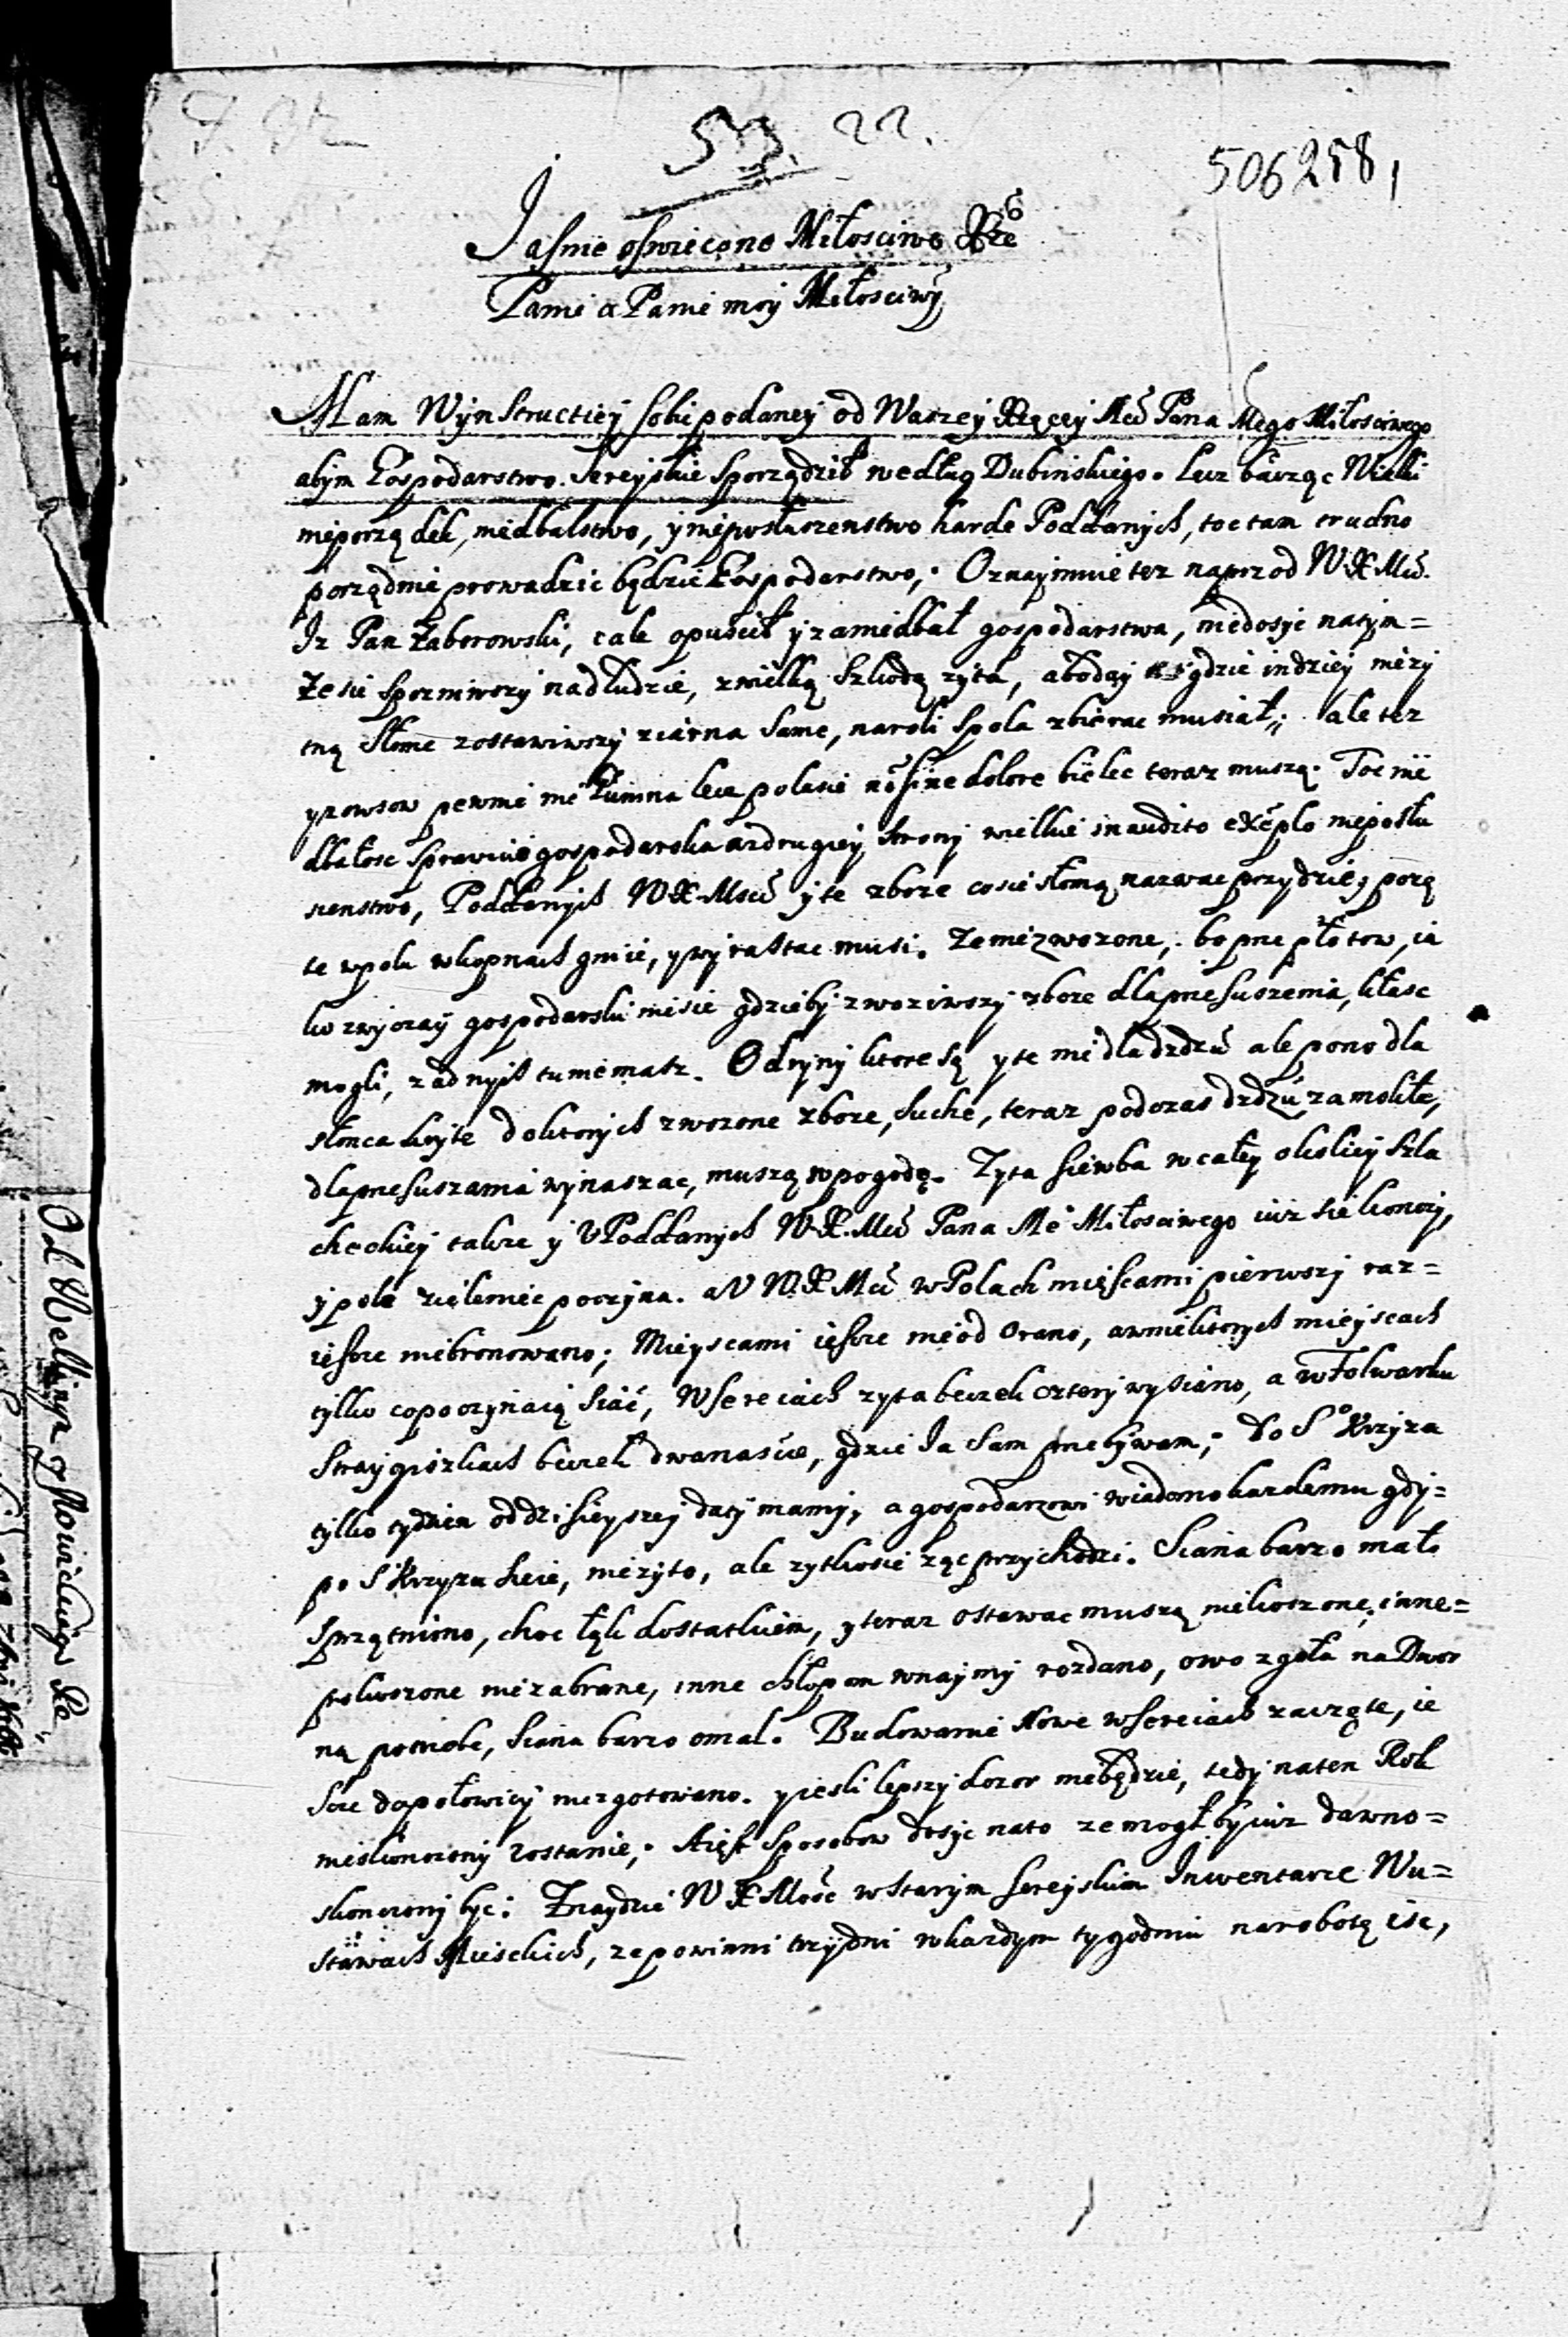 22.
506258,
Jasnie oswiecone Miłosciwe Xże
Panie a Panie moy Miłosciwy
Mam Wynstructiey sobie podaney od Waszey Xzęcey Mći Pana Mego Miłosciwego
abym Gospodarstwo Sereyskie sporządził według Dubinskiego. Lecz bacząc Wielki
nieporządek, niedbalstwo, y nieposłuszenstwo harde Poddanych, toc tam trudno
porządnie prowadzic będzie Gospodarstwo, Oznaymuie tez naprzod W X Mći.
Iz Pan Zaborowski, cale opuscił y zaniedbał gospodarstwa, niedosyc natym=
Ze sie spozniwszy nad ludzie, zwielką szkodą zyta, aboday gdzie indziey niezy
tną słome zostawiwszy ziarna same, na roli spola zbierac musiał; ale tez
y zowsow pewnie nie Gumna lecz polasie dolore bielec teraz muszą. Toc nie
dbałosc sprawuie gospodarska azdrugiey strony wielkie inaudito exẽplo nieposłu
szenstwo, Poddanych W X Mści y te zboze co sie słomą nazwac przydzie, pozę
te wpolu wkopnach gnie, y wyrastac musi. Ze nie zwozone, bo prze płotow, ia
ko zwyczay gospodarski niesie gdzieby zwoziwszy zboze dla przesuszenia, kłasc
mogli, zadnych tu niemasz. Odryny ktore są y te nie dla dzdzu ale pono dla
słonca kryte do ktorych zwozone zboze, suche, teraz podczas dzdzu zamokłe,
dla przesuszania wynaszac, muszą w pogodę. Zyta siewba w całey okolicy szla
checkiey takze y v Poddanych W.X.Mći Pana Mᵒ Miłosciwego iuz sie konczy,
y pole zielenic poczyna. a V W.X Mći w Polach mieyscami pierwszy raz=
ieszcze niebronowano; Mieyscami ieszcze nie od orano, a w niektorych mieyscach
tylko co poczynaią siać, W Sereiach zyta beczek cztery wysiano, a w Folwarku
Straygiszkach beczek dwanascie, gdzie Ia sam przebywam; do Sᵒ Krzyza
tylko tydzien od dzisieyszey daty mamy, a gospodarzowi wiadomo kazdemu gdy=
po S Krzyzu sieie, nie zyto, ale zytkosie ząc przychodzi. Siana barzo mało
sprzątniono, choc łąk dostatkiem, y teraz ostawac muszą niekoszone, inne=
pokoszone nie zabrane, inne chłopom wnaymy rozdano, owo zgoła na Dwor
ną potrzebe, siana barzo omal. Budowanie Nowe w Sereiach zaczęte, ie
szcze do połowicy nie zgotowano. y iesli lepszy dozor nie będzie, tedy na ten Rok
nieskonczony zostanie; A iest sposobow dosyc na to ze mogł by iuz dawno=
skonczony byc: Znaydzie W X Mość w starym Sereyskim Inwentarze Wu=
stawach Mieskich, ze powinni trzy dni w kazdym tygodniu na robotę isc,